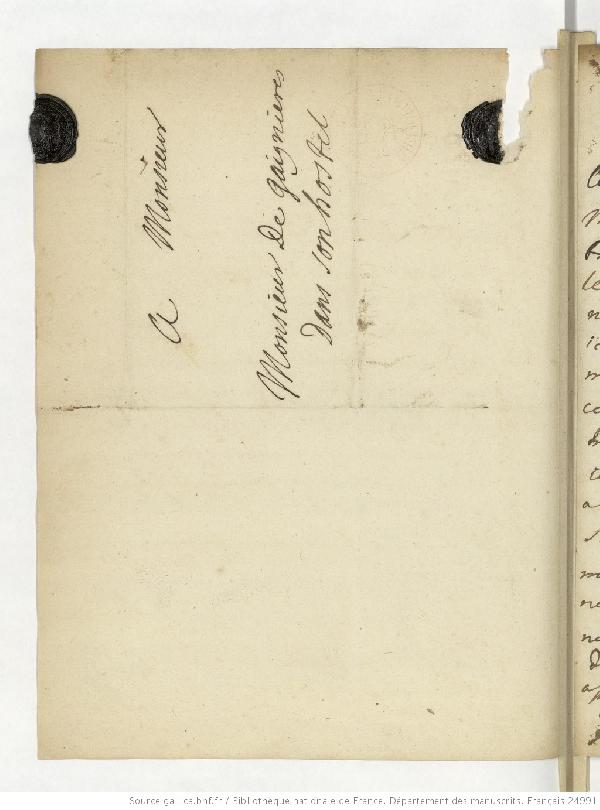 A Monsieur
Monsieur De gaignieres
Dans son hostel
Source gallica.bnf.fr / Bibliothèque nationale de France. Département des manuscrits. Français 24991